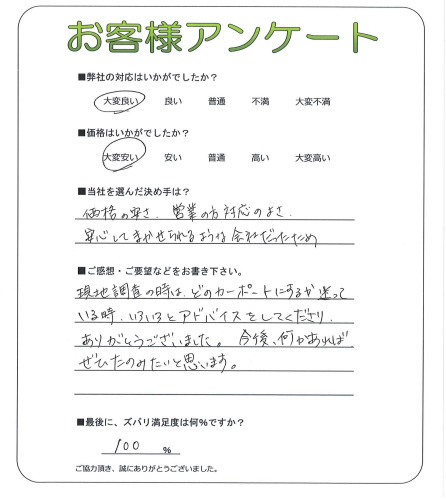 お客様アンケート
■弊社の対応はいかがでしたか?
大変良い 良い 普通 不満 大変不満
■価格はいかがでしたか?
大変安い 安い 普通 高い 大変高い
■当社を選んだ決め手は?
価格の安さ、営業の方対応のよさ、
安心してまかせられるような会社だったため
■ご感想・ご要望などをお書き下さい。
現地調査の時は、どのカーポートにするか迷って
いる時、いろいろとアドバイスをしてくださり、
ありがとうございました。今後、何かあれば
ぜひたのみたいと思います。
■最後に、ズバリ満足度は何%ですか?
100 %
ご協力頂き、誠にありがとうございました。